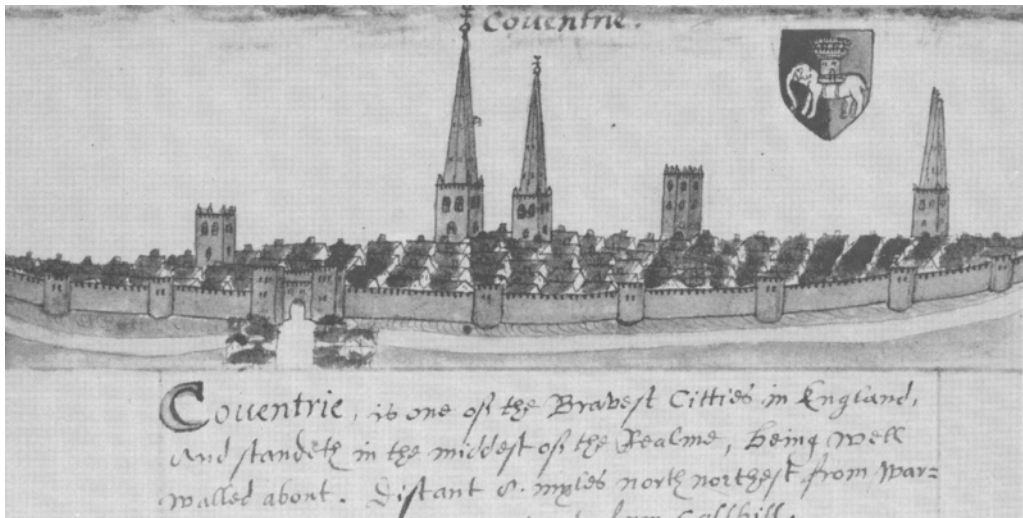 Couentrie.
Couentrie, is one of the Bravest Citties in England,
And standeth in the middest of the Realme, being well
walled about. Distant 8. myles north northest from War=
from Colshill.